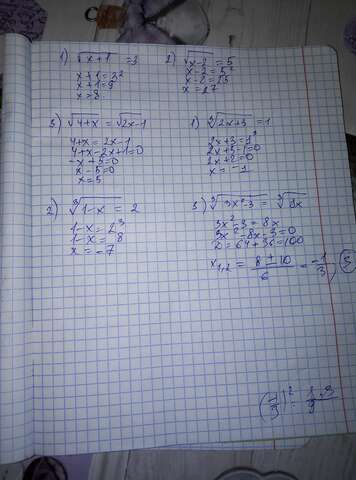 1) √x+1 = 3
x+1 = 3²
x+1 = 9
x = 8
2) √x-2 = 5
x-2 = 5²
x-2 = 25
x = 27
3) √4+x = √2x-1
4+x = 2x-1
4+x-2x+1=0
-x+5=0
x-5=0
x=5
1) ∛2x+3 = 1
2x+3=1³
2x+3-1=0
2x+2=0
x = -1
2) ∛1-x = 2
1-x = 2³
1-x = 8
x = -7
3) ∛3x²-3 = ∛8x
3x²-3 = 8x
3x²-8x-3=0
D = 64+36=100
x₁,₂ = 8±10 / 6 = -1/3, 3